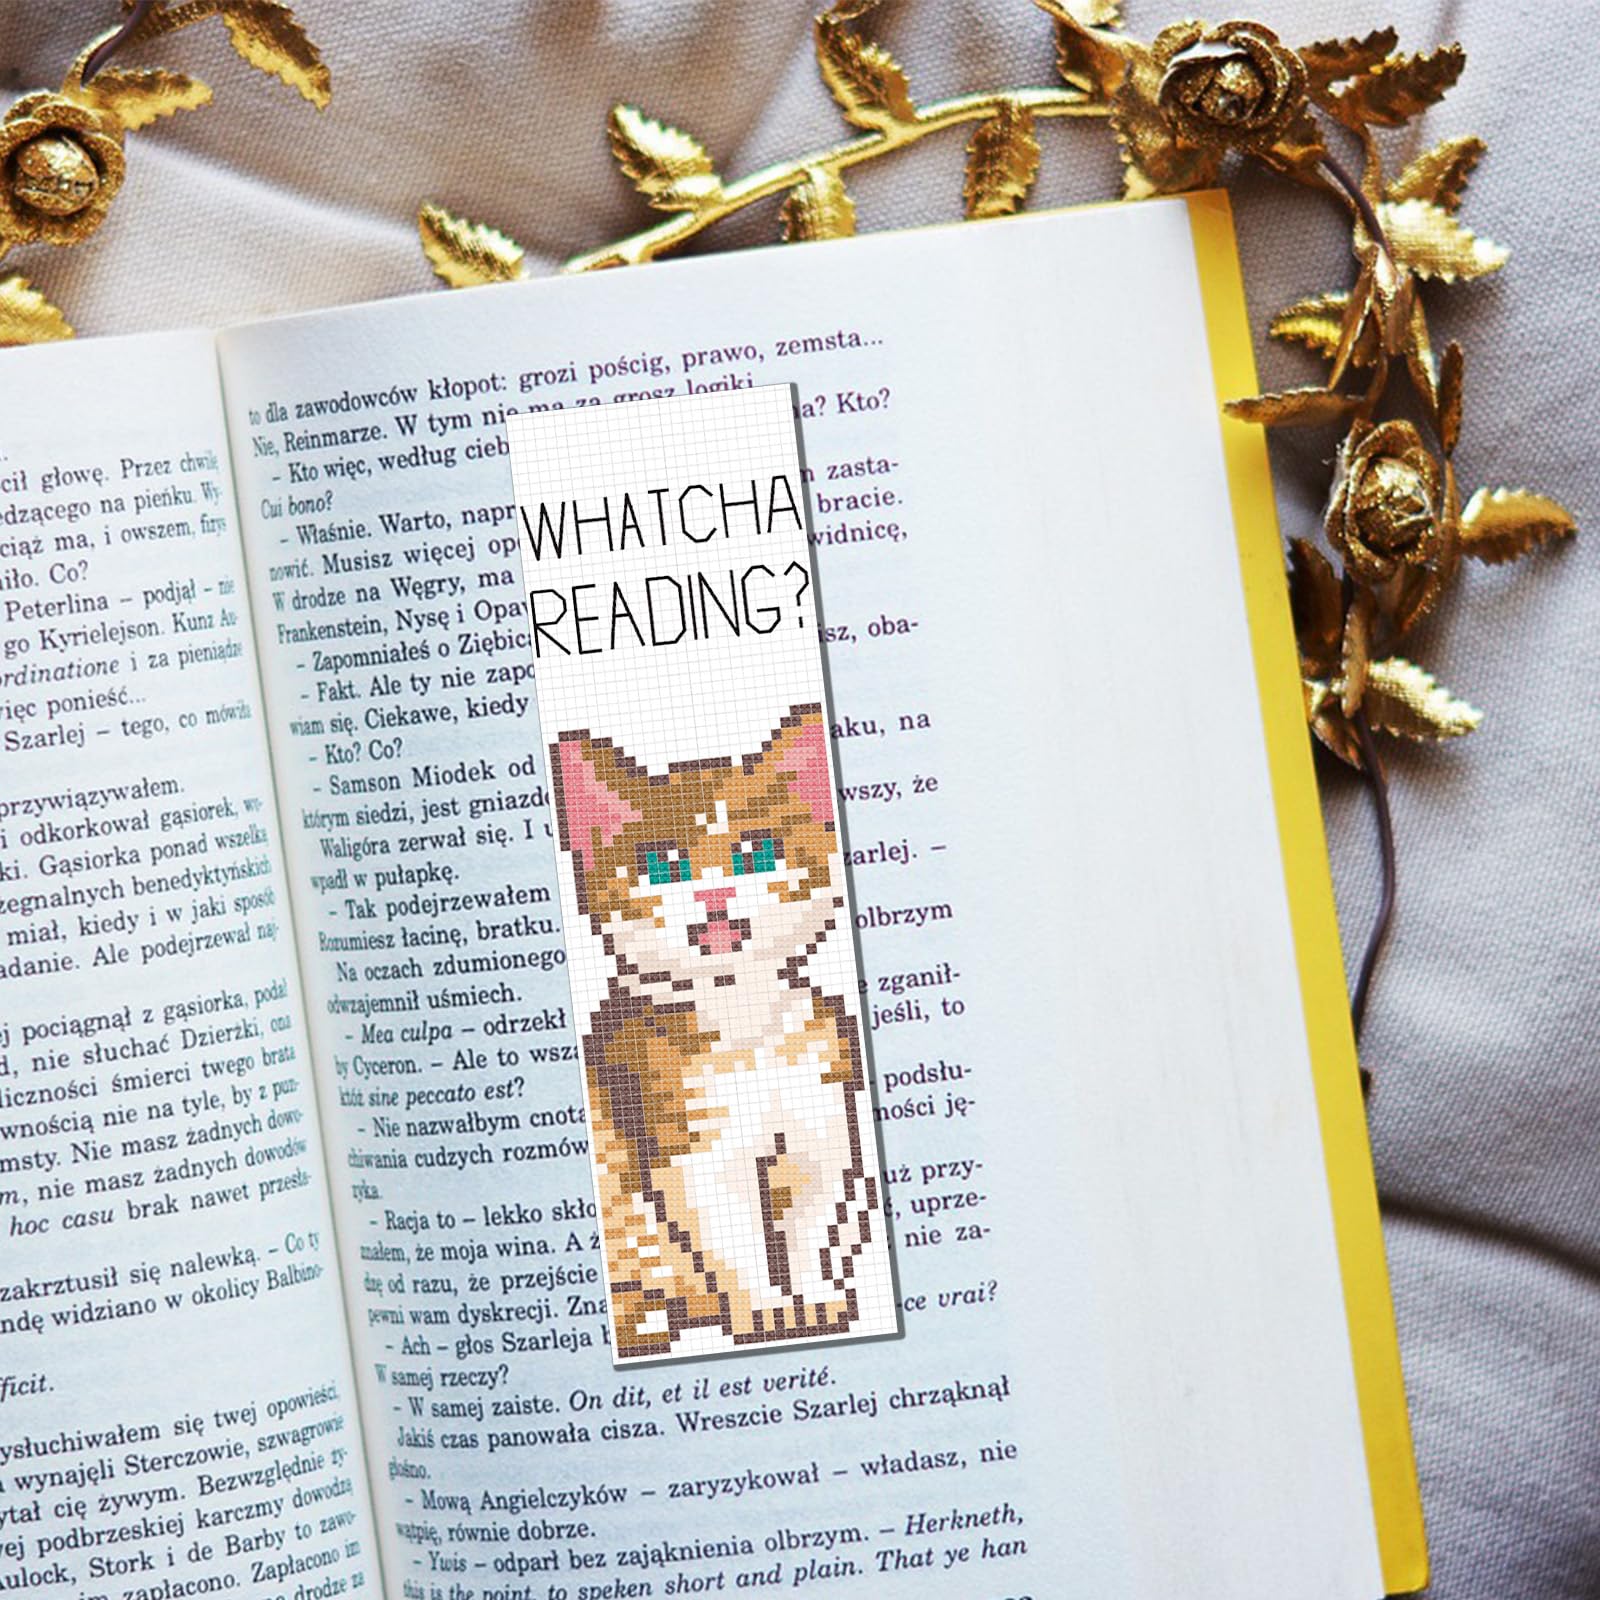 cił głowę. Przez chwilę
edzącego na pieńku. Wy-
ciąż ma, i owszem, firys
iło. Co?
Peterlina – podjął – nie
go Kyrielejson. Kunz Au-
rdinatione i za pieniądze
ięc ponieść...
Szarlej – tego, co mówiła
przywiązywałem.
i odkorkował gąsiorek, wy-
ki. Gąsiorka ponad wszelką
żegnalnych benedyktyńskich
miał, kiedy i w jaki sposób
adanie. Ale podejrzewał naj-
ej pociągnął z gąsiorka, podał
d, nie słuchać Dzierżki, ona
liczności śmierci twego brata
wnością nie na tyle, by z pun-
msty. Nie masz żadnych dowo-
m, nie masz żadnych dowodów
hoc casu brak nawet przesła-
zakrztusił się nalewką. – Co ty
ndę widziano w okolicy Balbino-
ficit.
ysłuchiwałem się twej opowieści,
wynajęli Sterczowie, szwagrowie
ytał cię żywym. Bezwzględnie ży-
ej podbrzeskiej karczmy dowodzą
Aulock, Stork i de Barby to zawo-
im zapłacono. Zapłacono im
drodze za
to dla zawodowców kłopot: grozi pościg, prawo, zemsta...
Nie, Reinmarze. W tym nie ma za grosz logiki.
na? Kto?
– Kto więc, według cieb
Cui bono?
zasta-
– Właśnie. Warto, napr
bracie.
nowić. Musisz więcej opo
widnicę,
W drodze na Węgry, ma
Frankenstein, Nysę i Opaw
– Zapomniałeś o Ziębica
isz, oba-
– Fakt. Ale ty nie zapo
wiam się. Ciekawe, kiedy
– Kto? Co?
aku, na
– Samson Miodek od
którym siedzi, jest gniazdo
wszy, że
Waligóra zerwał się. I u
wpadł w pułapkę.
zarlej. –
– Tak podejrzewałem
Rozumiesz łacinę, bratku.
olbrzym
Na oczach zdumionego
odwzajemnił uśmiech.
zganił-
– Mea culpa – odrzekł
jeśli, to
by Cyceron. – Ale to wsza
któż sine peccato est?
podsłu-
– Nie nazwałbym cnotą
ności ję-
chiwania cudzych rozmów
zyka.
uż przy-
– Racja to – lekko skło
uprze-
znałem, że moja wina. A ż
nie za-
dzę od razu, że przejście
pewni wam dyskrecji. Zna
-ce vrai?
– Ach – głos Szarleja b
W samej rzeczy?
– W samej zaiste. On dit, et il est verité.
Jakiś czas panowała cisza. Wreszcie Szarlej chrząknął
głośno.
– Mową Angielczyków – zaryzykował – władasz, nie
wątpię, równie dobrze.
– Ywis – odparł bez zająknienia olbrzym. – Herkneth,
this is the point, to speken short and plain. That ye han
WHATCHA
READING?